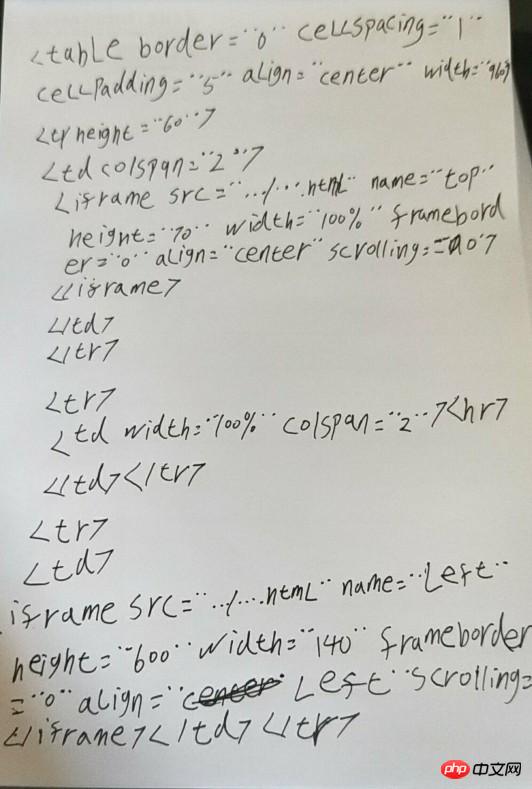 <table border="0" cellspacing="1"
cellpadding="5" align="center" width="960">
<tr height="60">
<td colspan="2">
<iframe src="../....html" name="top"
height="70" width="100%" framebord
er="0" align="center" scrolling="no">
</iframe>
</td>
</tr>
<tr>
<td width="100%" colspan="2"><hr>
</td></tr>
<tr>
<td>
iframe src="../....html" name="Left"
height="600" width="140" frameborder
="0" align="Left" scrolling=
</iframe></td></tr>
php 中文网